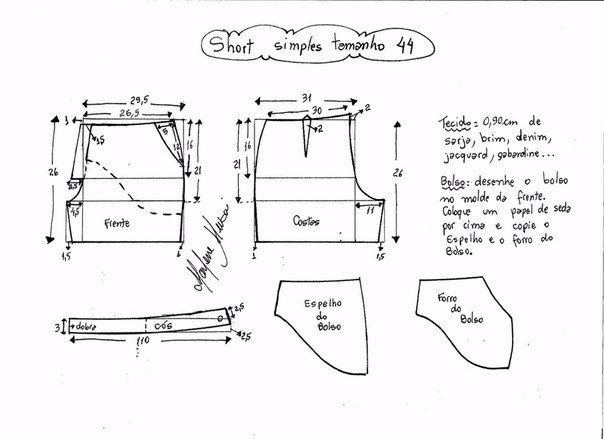 Short simples tamanho 44
29,5
26,5
1
1,5
5
12
16
21
26
3,5
4,5
Frente
1,5
1
31
30
2
2
16
21
26
11
Costas
1
1,5
Tecido: 0,90cm de
sarja, brim, denim,
jacquard, gabardine...
Bolso: desenhe o bolso
no molde da frente.
Coloque um papel de seda
por cima e copie o
Espelho e o forro do
Bolso.
3
dobra
cós
2,5
2,5
110
Espelho
do
Bolso
Forro
do
Bolso